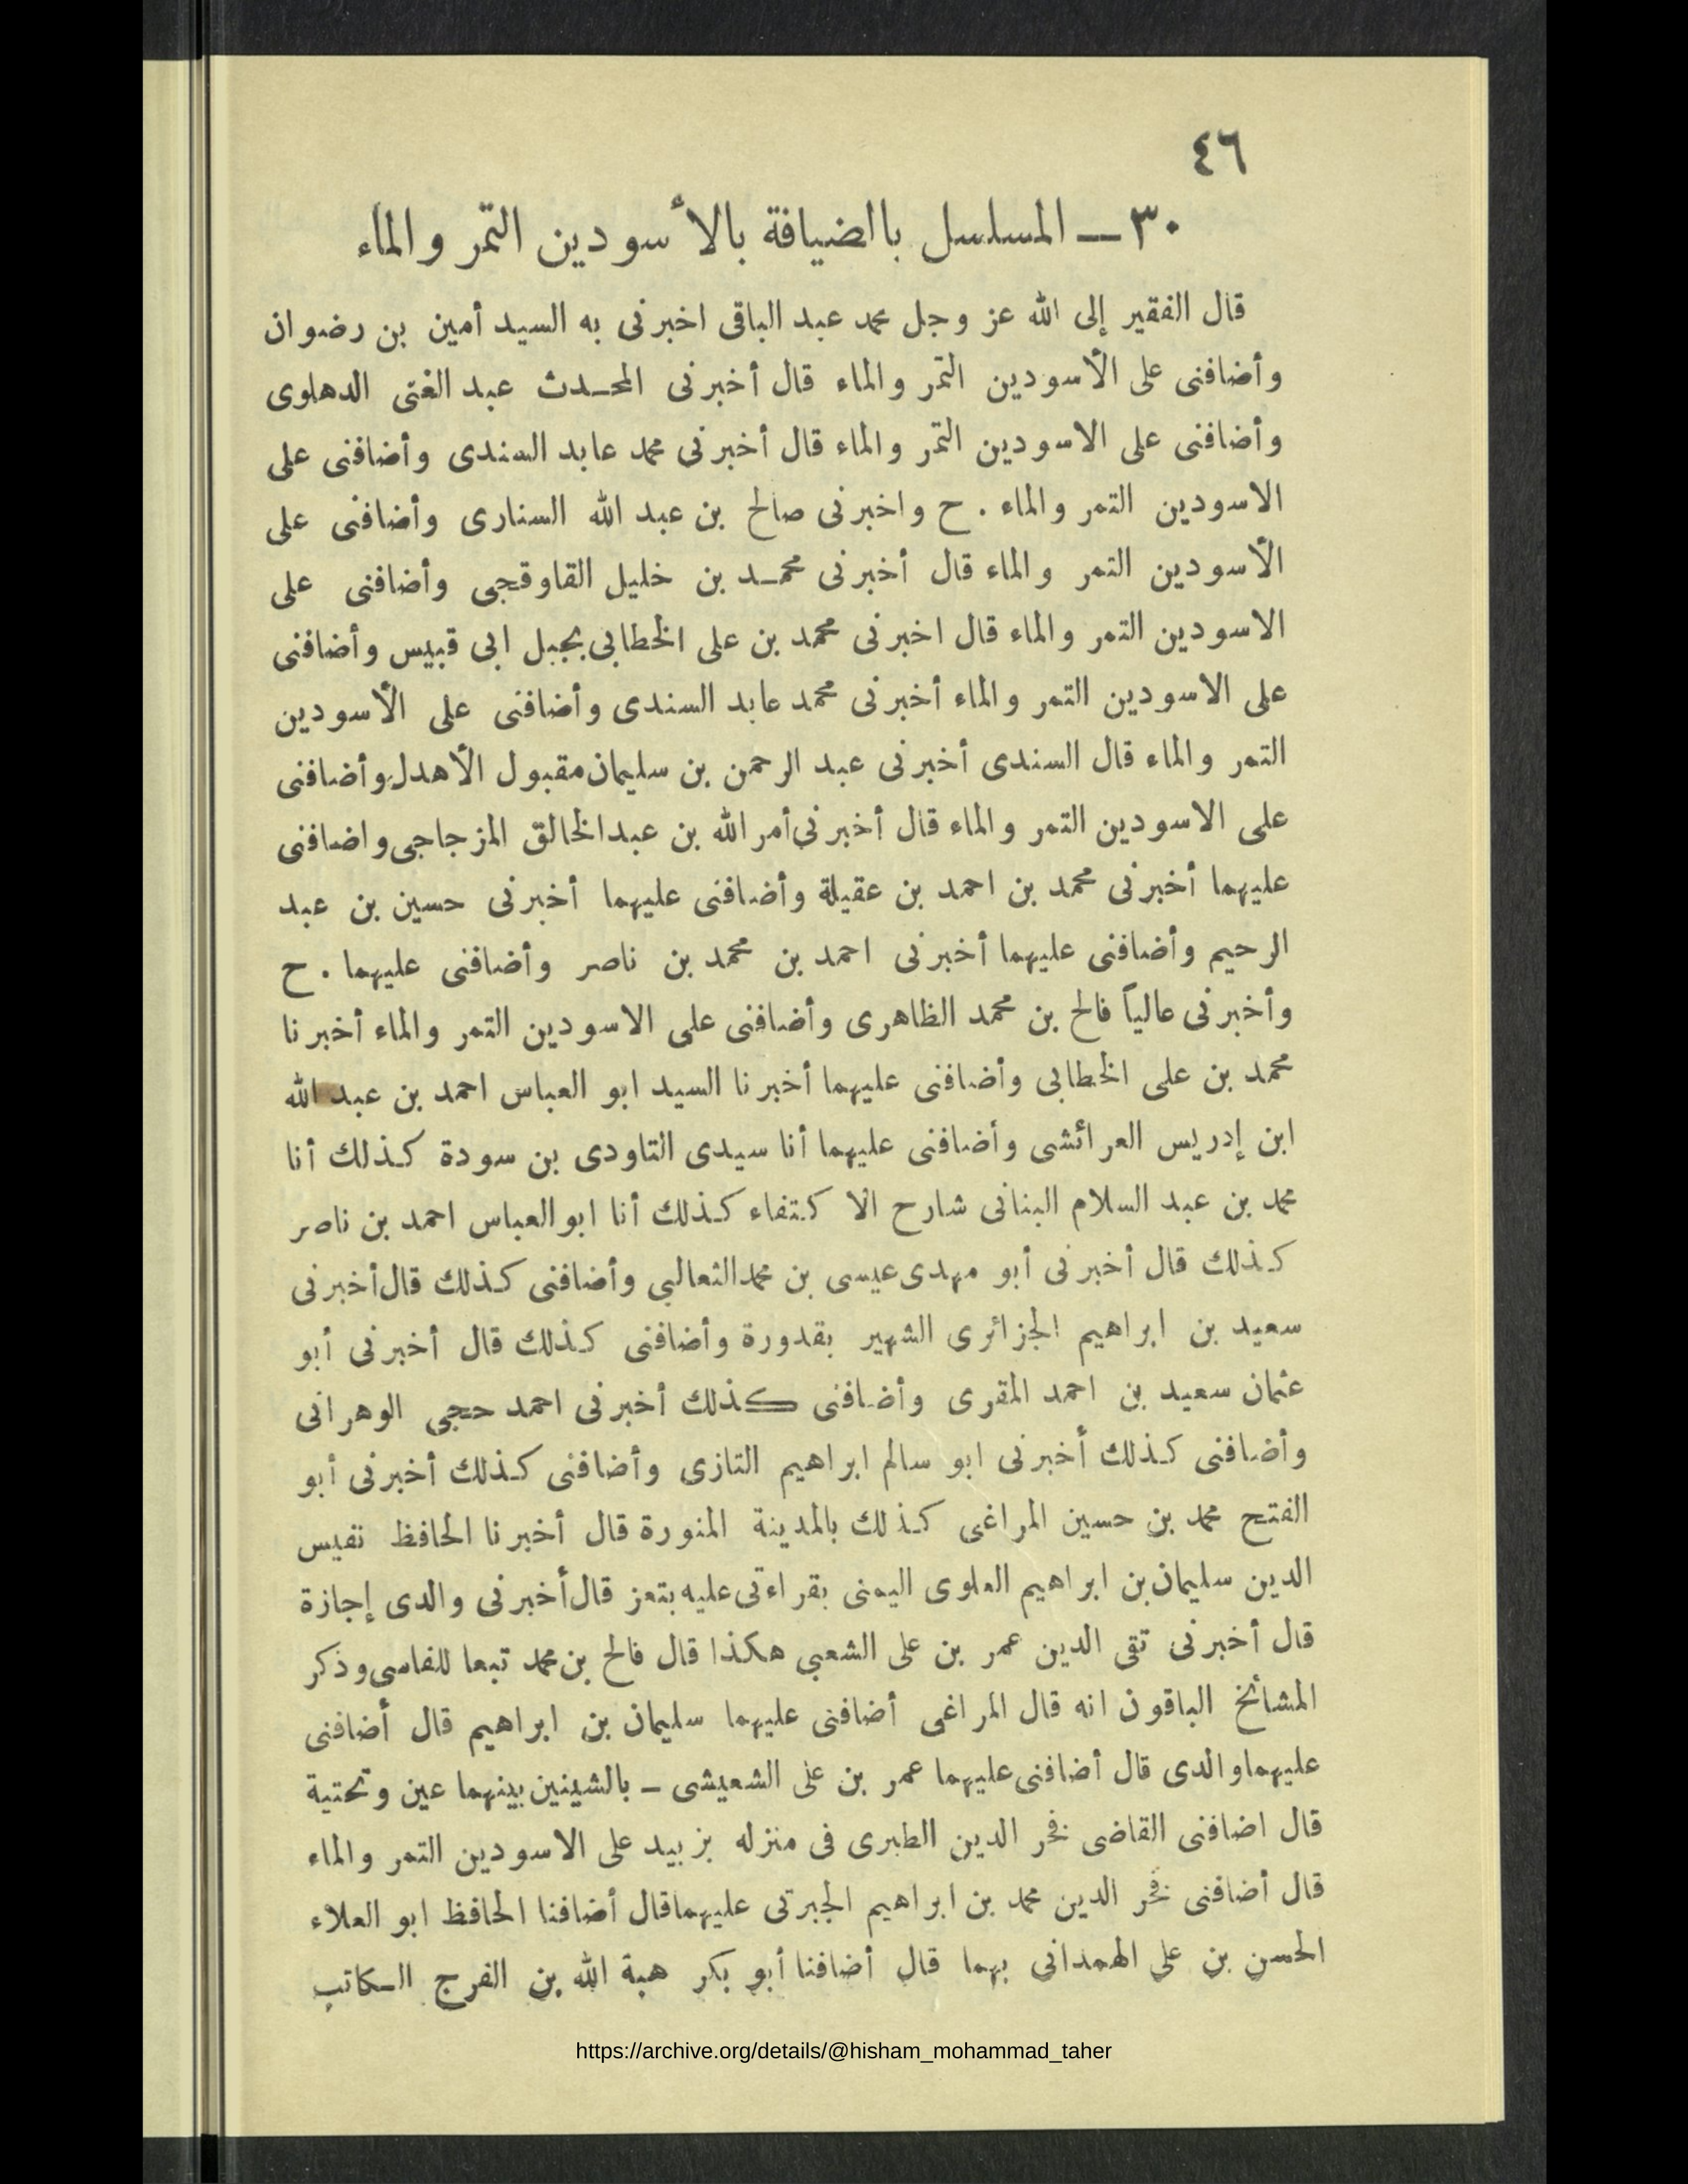 ٤٦
٣٠ — المسلسل بالضيافة بالأسودين التمر والماء
قال الفقير إلى الله عز وجل محمد عبد الباقى اخبرنى به السيد أمين بن رضوان
وأضافنى على الأسودين التمر والماء قال أخبرنى المحـدث عبد الغنى الدهلوى
وأضافنى على الاسودين التمر والماء قال أخبرنى محمد عابد السندى وأضافنى على
الاسودين التمر والماء . ح واخبرنى صالح بن عبد الله السنارى وأضافنى على
الأسودين التمر والماء قال أخبرنى محمـد بن خليل القاوقجى وأضافنى على
الاسودين التمر والماء قال اخبرنى محمد بن على الخطابى بجبل ابى قبيس وأضافنى
على الاسودين التمر والماء أخبرنى محمد عابد السندى وأضافنى على الأسودين
التمر والماء قال السندى أخبرنى عبد الرحمن بن سليمان مقبول الأهدل وأضافنى
على الاسودين التمر والماء قال أخبرنى أمر الله بن عبد الخالق المزجاجى واضافنى
عليهما أخبرنى محمد بن احمد بن عقيلة وأضافنى عليهما أخبرنى حسين بن عبد
الرحيم وأضافنى عليهما أخبرنى احمد بن محمد بن ناصر وأضافنى عليهما . ح
وأخبرنى عالياً فالح بن محمد الظاهرى وأضافنى على الاسودين التمر والماء أخبرنا
محمد بن على الخطابى وأضافنى عليهما أخبرنا السيد ابو العباس احمد بن عبد الله
ابن إدريس العرائشى وأضافنى عليهما أنا سيدى التاودى بن سودة كذلك أنا
محمد بن عبد السلام البنانى شارح الاكتفاء كذلك أنا ابو العباس احمد بن ناصر
كذلك قال أخبرنى أبو مهدى عيسى بن محمد الثعالبي وأضافنى كذلك قال أخبرنى
سعيد بن ابراهيم الجزائرى الشهير بقدورة وأضافنى كذلك قال أخبرنى أبو
عثمان سعيد بن احمد المقرى وأضافنى كذلك أخبرنى احمد حجى الوهرانى
وأضافنى كذلك أخبرنى ابو سالم ابراهيم التازى وأضافنى كذلك أخبرنى أبو
الفتح محمد بن حسين المراغى كذلك بالمدينة المنورة قال أخبرنا الحافظ نفيس
الدين سليمان بن ابراهيم العلوى اليمنى بقراءتى عليه بتعز قال أخبرنى والدى إجازة
قال أخبرنى تقى الدين عمر بن على الشعبي هكذا قال فالح بن محمد تبعا للفاسى وذكر
المشائخ الباقون انه قال المراغى أضافنى عليهما سليمان بن ابراهيم قال أضافنى
عليهما والدى قال أضافنى عليهما عمر بن على الشعيشى — بالشينين بينهما عين وتحتية
قال اضافنى القاضى فخر الدين الطبرى فى منزله بزبيد على الاسودين التمر والماء
قال أضافنى فخر الدين محمد بن ابراهيم الجبرتى عليهما قال أضافنا الحافظ ابو العلاء
الحسن بن على الهمدانى بهما قال أضافنا أبو بكر هبة الله بن الفرج الكاتب
https://archive.org/details/@hisham_mohammad_taher